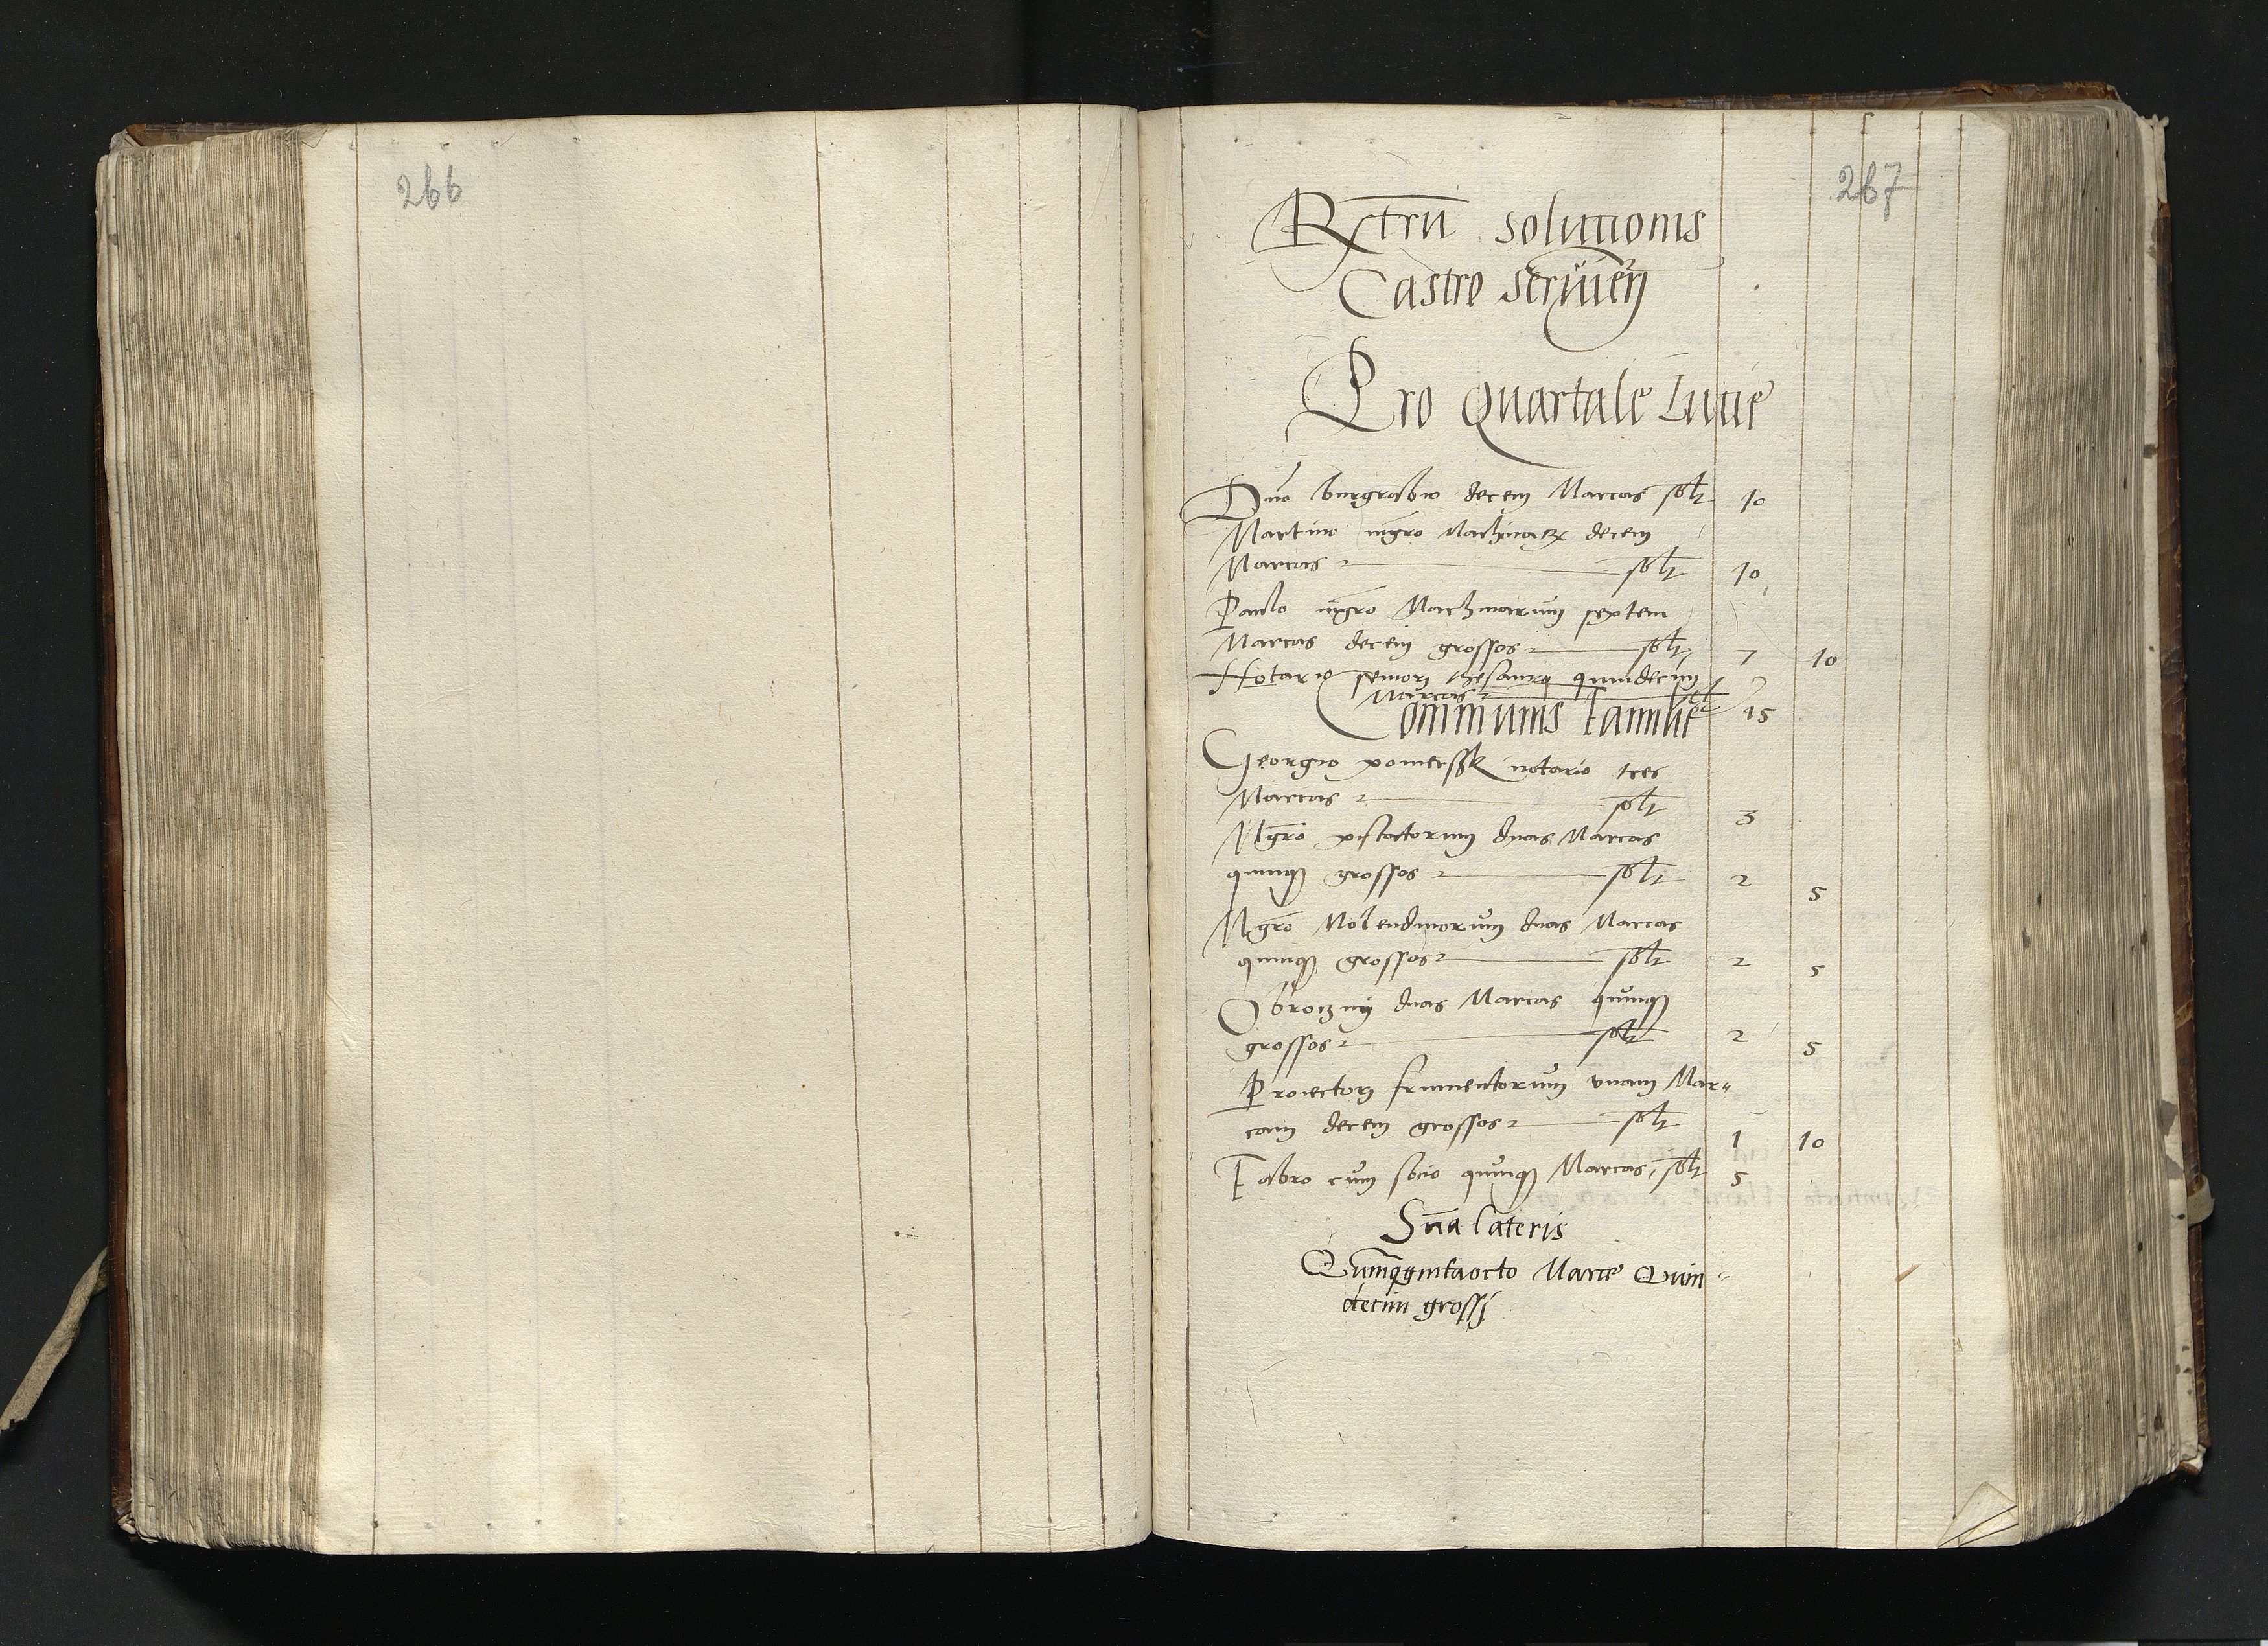 266
267
Rxtrũ solucionis
Castro serviẽn
Pro Quartale Lucie
Dno burgrabio decem Marcas solt 10
Martino mgro Machinaꝝ decem
Marcas solt 10
Paulo mgro Machinarum septem
Marcas decem grossos solt 7 10
Notario seniori thesaurij quindecim
Marcas solt 15
Communis Familie
Georgio pomerszk notario tres
Marcas solt 3
Mgro pistatorum duas Marcas
quinqȝ grossos solt 2 5
Mgro Molendinorum duas Marcas
quinqȝ grossos solt 2 5
Obroczny duas Marcas quinqȝ
grossos solt 2 5
Proiectori frumentorum vnam Mar-
cam decem grossos solt 1 10
Fabro cum socio quinqȝ Marcas solt 5
Sũa Lateris
Quinqgintaocto Marce Quin-
decim grossi